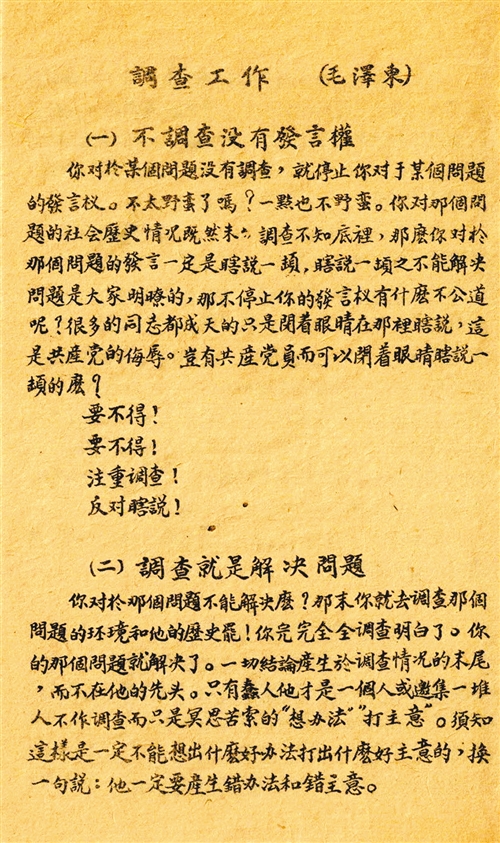 調查工作 (毛澤東)
(一) 不調查没有發言權
你对於某個問題没有調查，就停止你对于某個問題
的發言权。不太野蛮了嗎？一點也不野蛮。你对那個問
題的社会歷史情况既然未調查不知底裡，那麽你对於
那個問題的發言一定是瞎説一頭，瞎説一頭之不能解决
問題是大家明瞭的，那不停止你的發言权有什麽不公道
呢？很多的同志都成天的只是閉着眼睛在那裡瞎説，這
是共産党的侮辱。豈有共産党員而可以閉着眼睛瞎説一
頭的麽？
要不得！
要不得！
注重调查！
反对瞎説！
(二) 調查就是解决問題
你对於那個問題不能解决麽？那末你就去調查那個
問題的环境和他的歷史罷！你完完全全調查明白了。你
的那個問題就解决了。一切結論産生於調查情况的末尾
，而不在他的先头。只有蠢人他才是一個人或邀集一堆
人不作調查而只是冥思苦索的“想办法”“打主意”。須知
這樣是一定不能想出什麽好办法打出什麽好主意的，換
一句説：他一定要産生錯办法和錯主意。